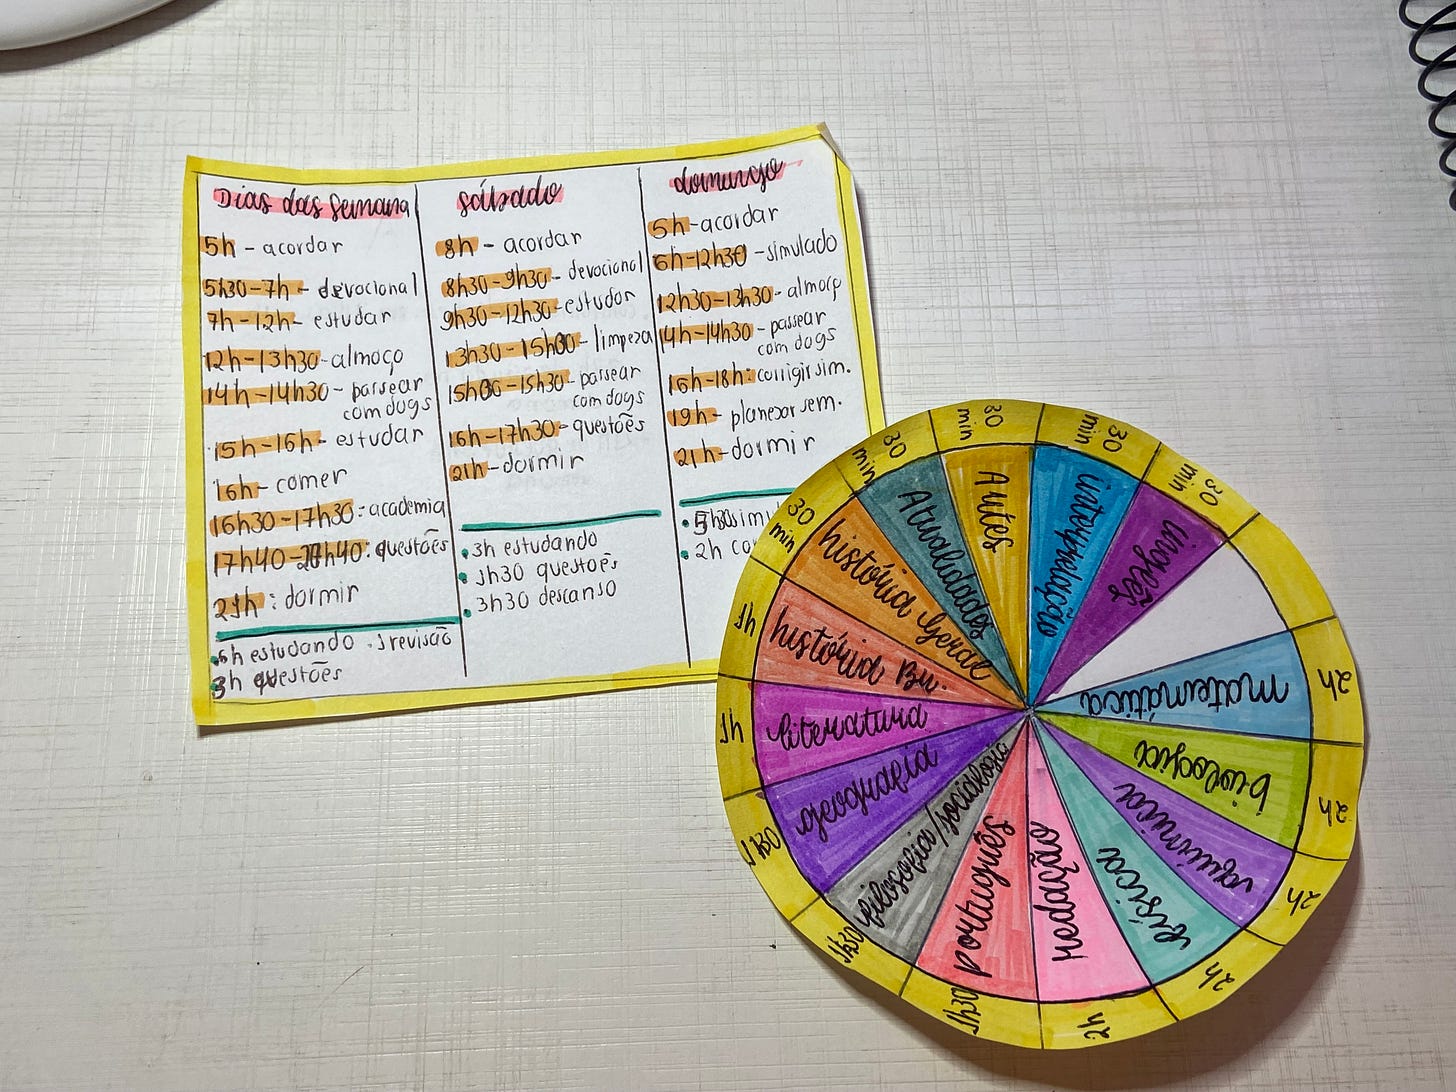 Dias das semana
5h - acordar
5h30-7h - devocional
7h-12h - estudar
12h-13h30 - almoço
14h-14h30 - passear
com dogs
15h-16h - estudar
16h - comer
16h30-17h30: academia
17h40-20h40: questões
21h: dormir
6h estudando . 1 revisão
3h questões
sábado
8h - acordar
8h30-9h30 - devocional
9h30-12h30 - estudar
13h30-15h00 - limpeza
15h00-15h30 - passear
com dogs
16h-17h30 - questões
21h - dormir
3h estudando
1h30 questões
3h30 descanso
domingo
5h - acordar
6h-12h30 - simulado
12h30-13h30 - almoço
14h-14h30 - passear
com dogs
16h-18h: corrigir sim.
19h - planejar sem.
21h - dormir
2h
inglês
30 min
interpretação
30 min
Artes
30 min
Atualidades
30 min
história Geral
30 min
história Br.
1h
literatura
1h
geografia
1h30
filosofia/sociologia
1h30
português
1h30
redação
2h
física
2h
química
2h
biologia
2h
matemática
2h